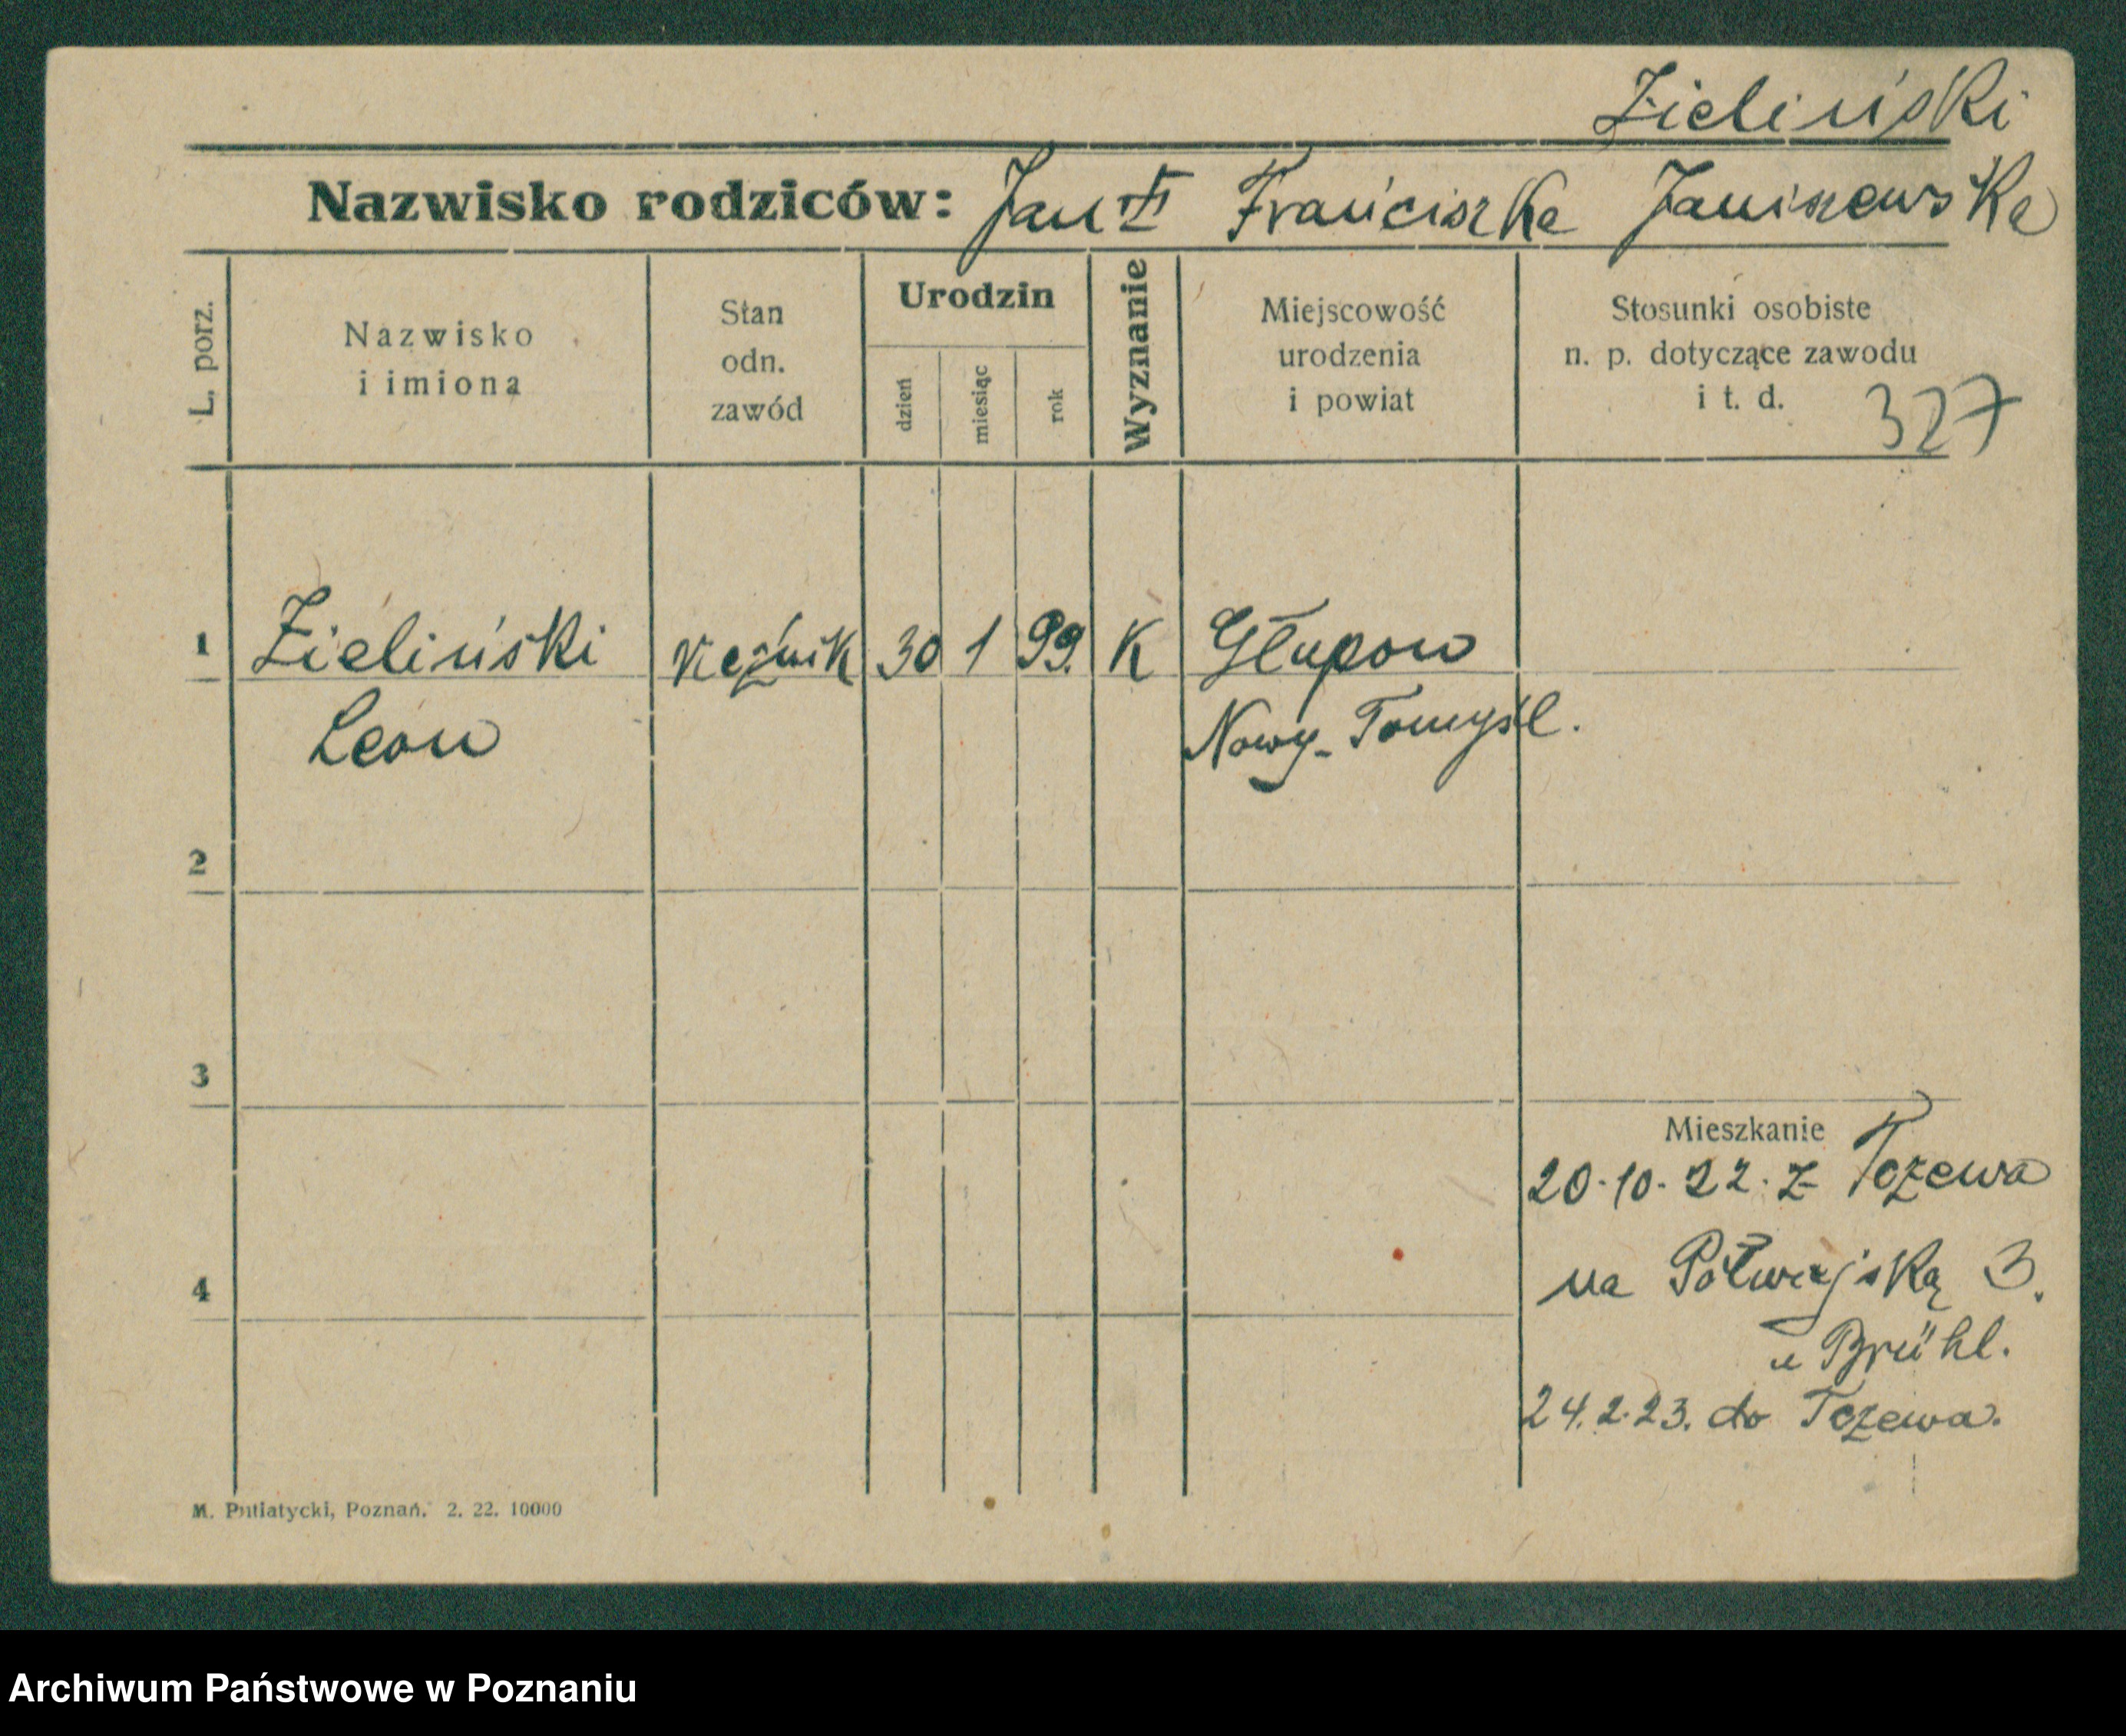 Zieliński
Nazwisko rodziców: Jan Franciszka Janiszewska
L. porz.
Nazwisko
i imiona
Stan
odn.
zawód
Urodzin
dzień
miesiąc
rok
Wyznanie
Miejscowość
urodzenia
i powiat
Stosunki osobiste
n. p. dotyczące zawodu
i t. d.
327
1 Zieliński rzeźnik 30 1 99. K Głupon
Leon Nowy-Tomyśl.
2
3
Mieszkanie
20.10.22. z Tczewa
4 na Półwiejską 3.
u Brühl.
24.2.23. do Tczewa.
M. Putiatycki, Poznań. 2. 22. 10000
Archiwum Państwowe w Poznaniu